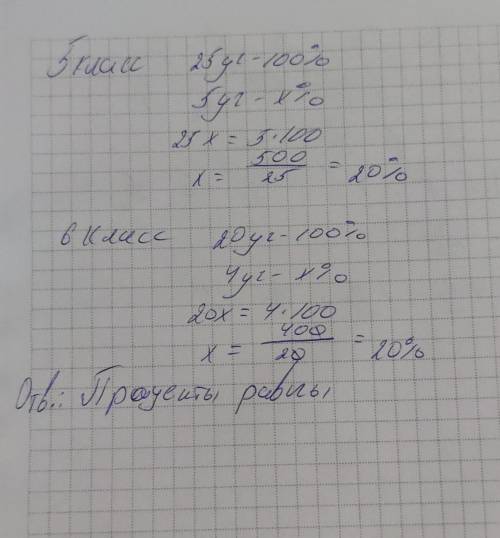 5 класс 25 уч - 100%
5 уч - х%
25х = 5·100
х = 500/25 = 20%
6 класс 20 уч - 100%
4 уч - х%
20х = 4·100
х = 400/20 = 20%
Отв.: Проценты равны